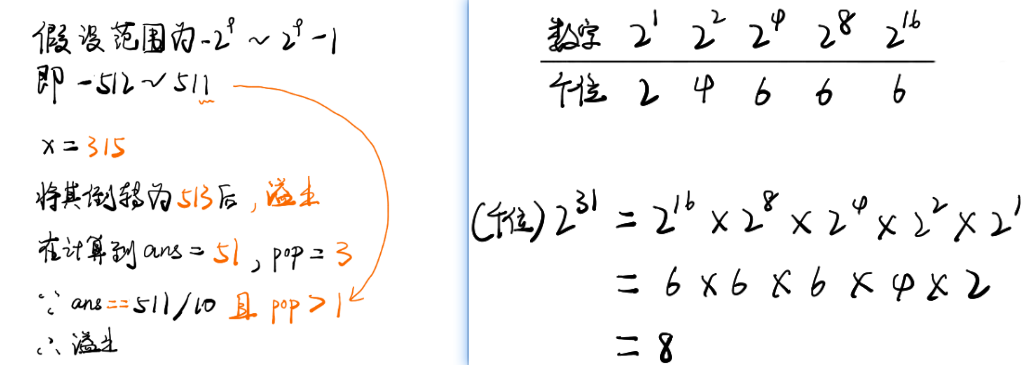 假设范围为-2⁹ ~ 2⁹-1
即 -512 ~ 511
x = 315
将其倒转为513后，溢出
在计算到ans = 51，pop = 3
∵ ans == 511/10 且 pop > 1
∴ 溢出
数字 2¹ 2² 2⁴ 2⁸ 2¹⁶
个位 2 4 6 6 6
(个位) 2³¹ = 2¹⁶ × 2⁸ × 2⁴ × 2² × 2¹
= 6 × 6 × 6 × 4 × 2
= 8